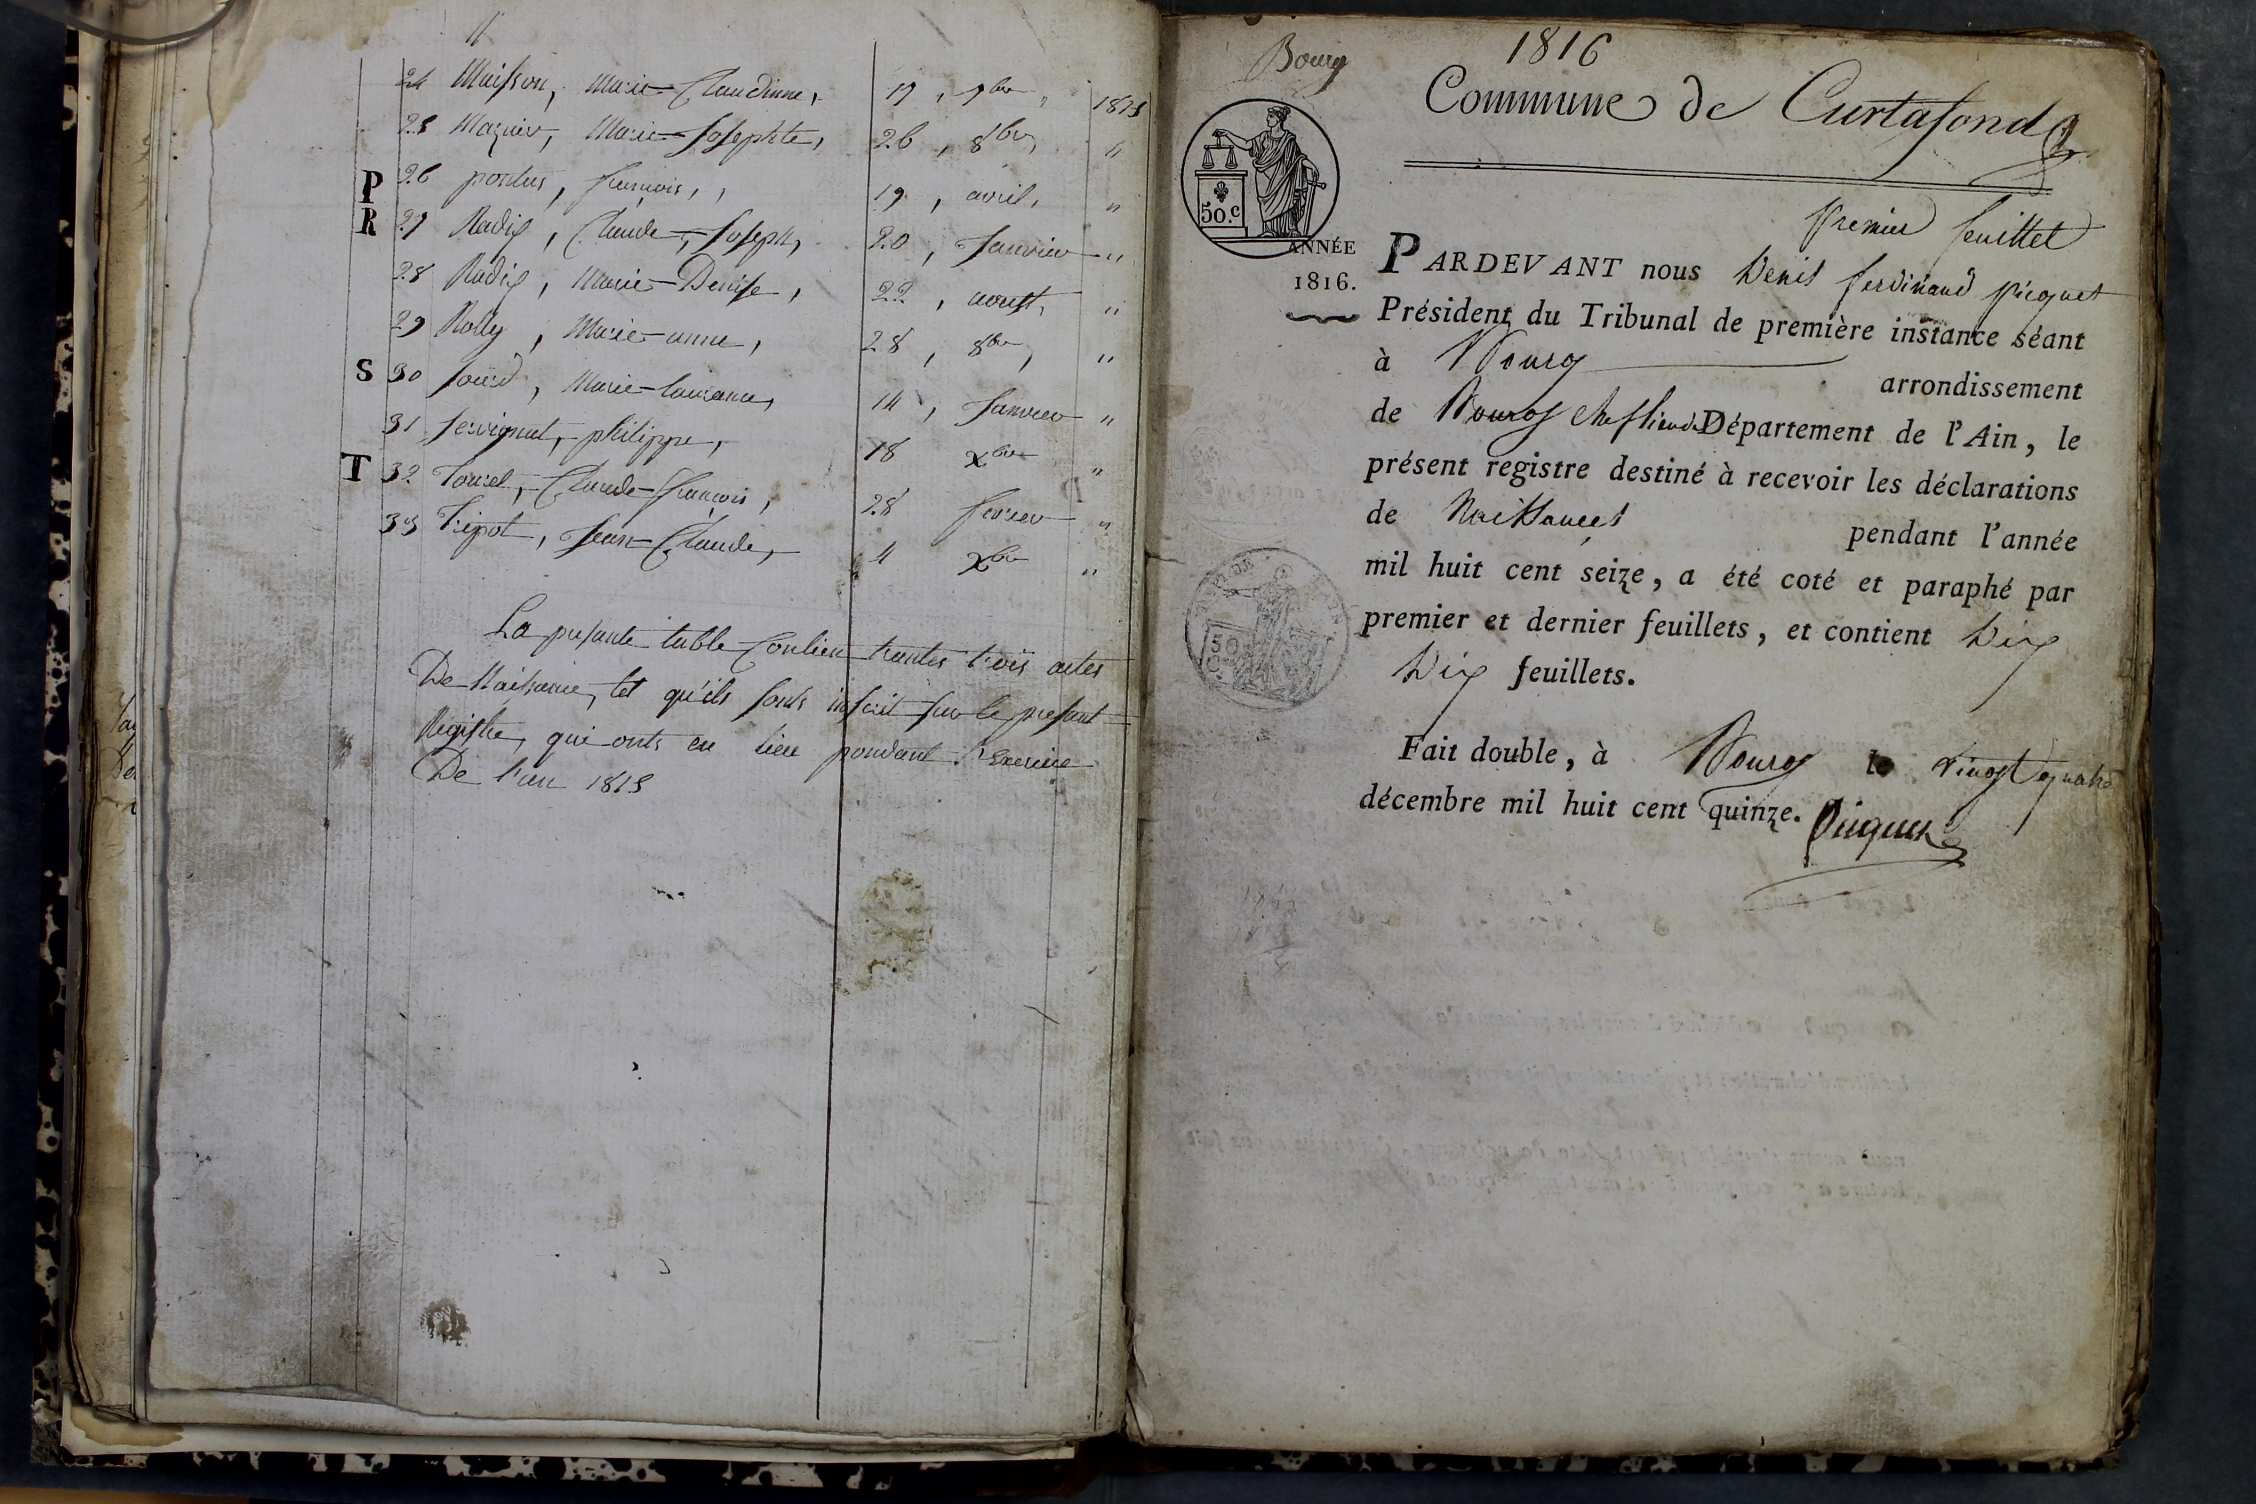 24 Maisson, Marie-Claudinne, 17, 9bre, 1815
25 Mazuier, Marie-Josephte, 26, 8bre, "
P 26 pontus, francois,, 19, avril, "
R 27 Radix, Claude-Joseph, 20, Janvier "
28 Radix, Marie-Denise, 22, aoust, "
29 Rolly, Marie-anne, 28, 8bre, "
S 30 Marie- 14, Janvier "
31 Servignat, philippe, 18 xbre "
T 32 Claude-francois, 28 fevrier "
33 Tripot, Jean-Claude, 4 xbre "
La presante table Contien trantes trois actes
De Naissance, tel qu'ils sonts inscrit sur le presant
Registre, qui onts eu lieu pendant l'Exercice
De l'an 1815
Bourg
1816
Commune de Curtafond
50.c
ANNÉE
1816.
premier feuillet
PARDEVANT nous Denis ferdinand picquet
Président du Tribunal de première instance séant
à Bourg arrondissement
de Bourg Chef lieu du Département de l'Ain, le
présent registre destiné à recevoir les déclarations
de Naissances pendant l'année
mil huit cent seize, a été coté et paraphé par
premier et dernier feuillets, et contient Dix
Dix feuillets.
50
C
Fait double, à Bourg le vingt quatre
décembre mil huit cent quinze. Picquet